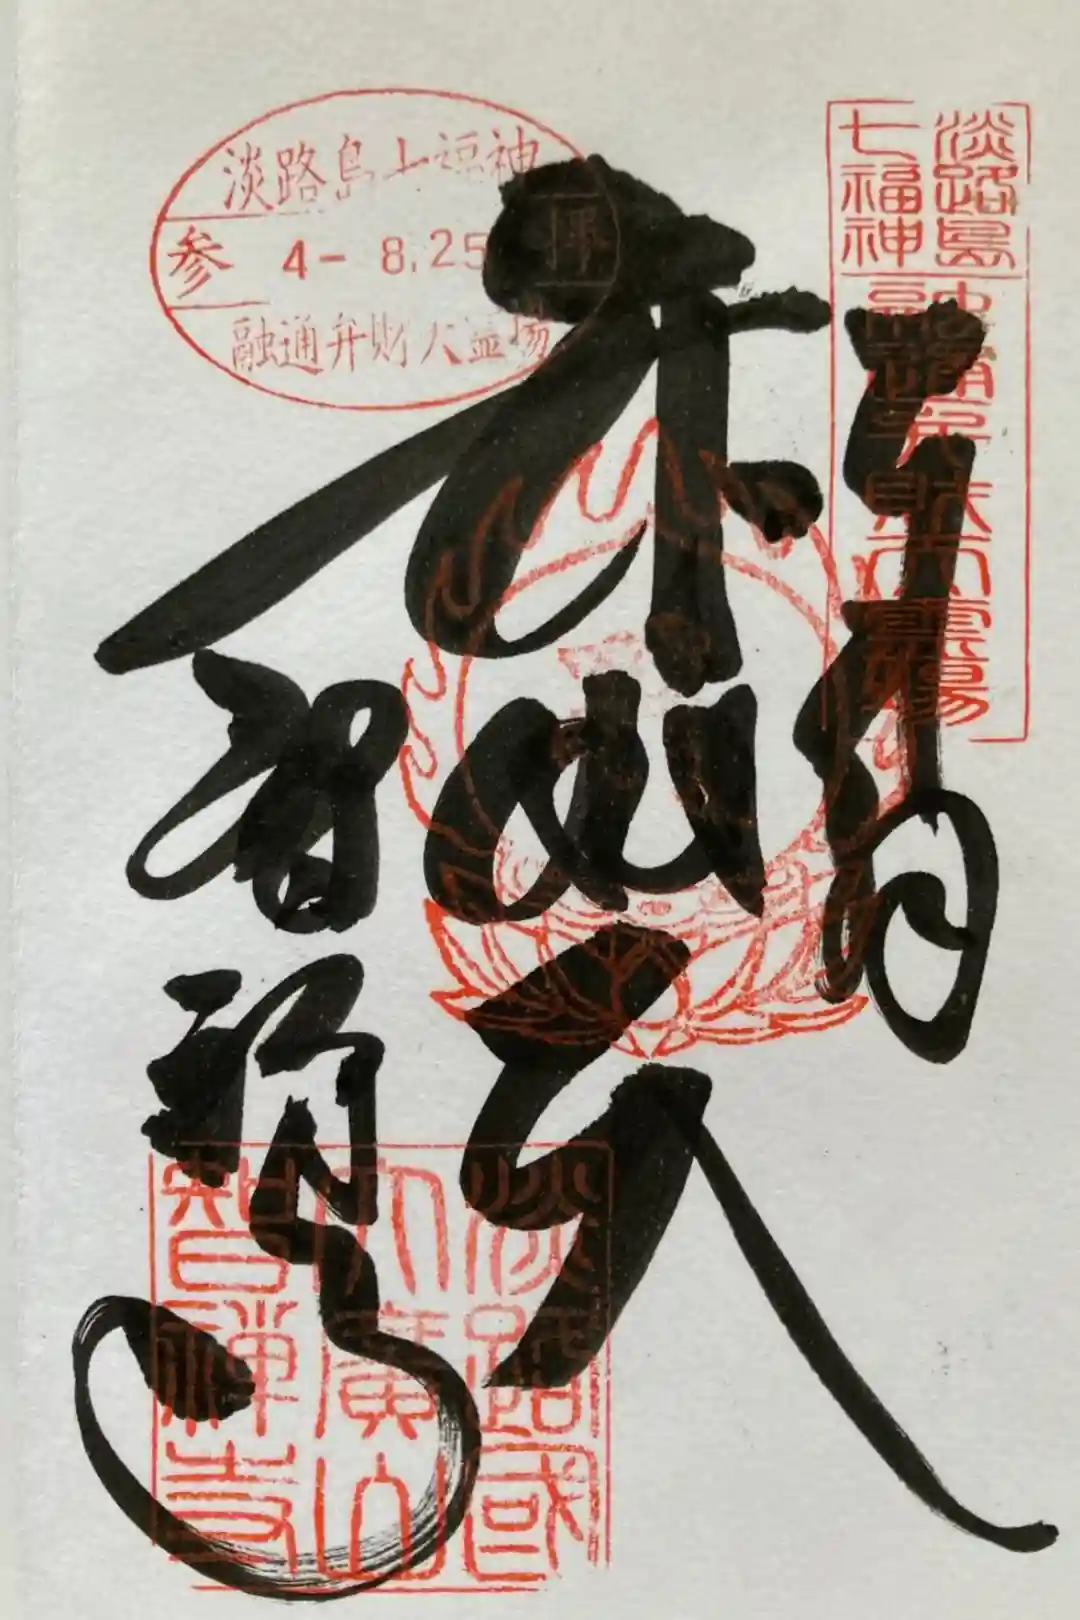 淡路島
七福神
融通弁財天霊場
淡路島七福神
参 4-8.25 拝
融通弁財天霊場
天
智禅寺
淡路國
大廣山
智禅寺